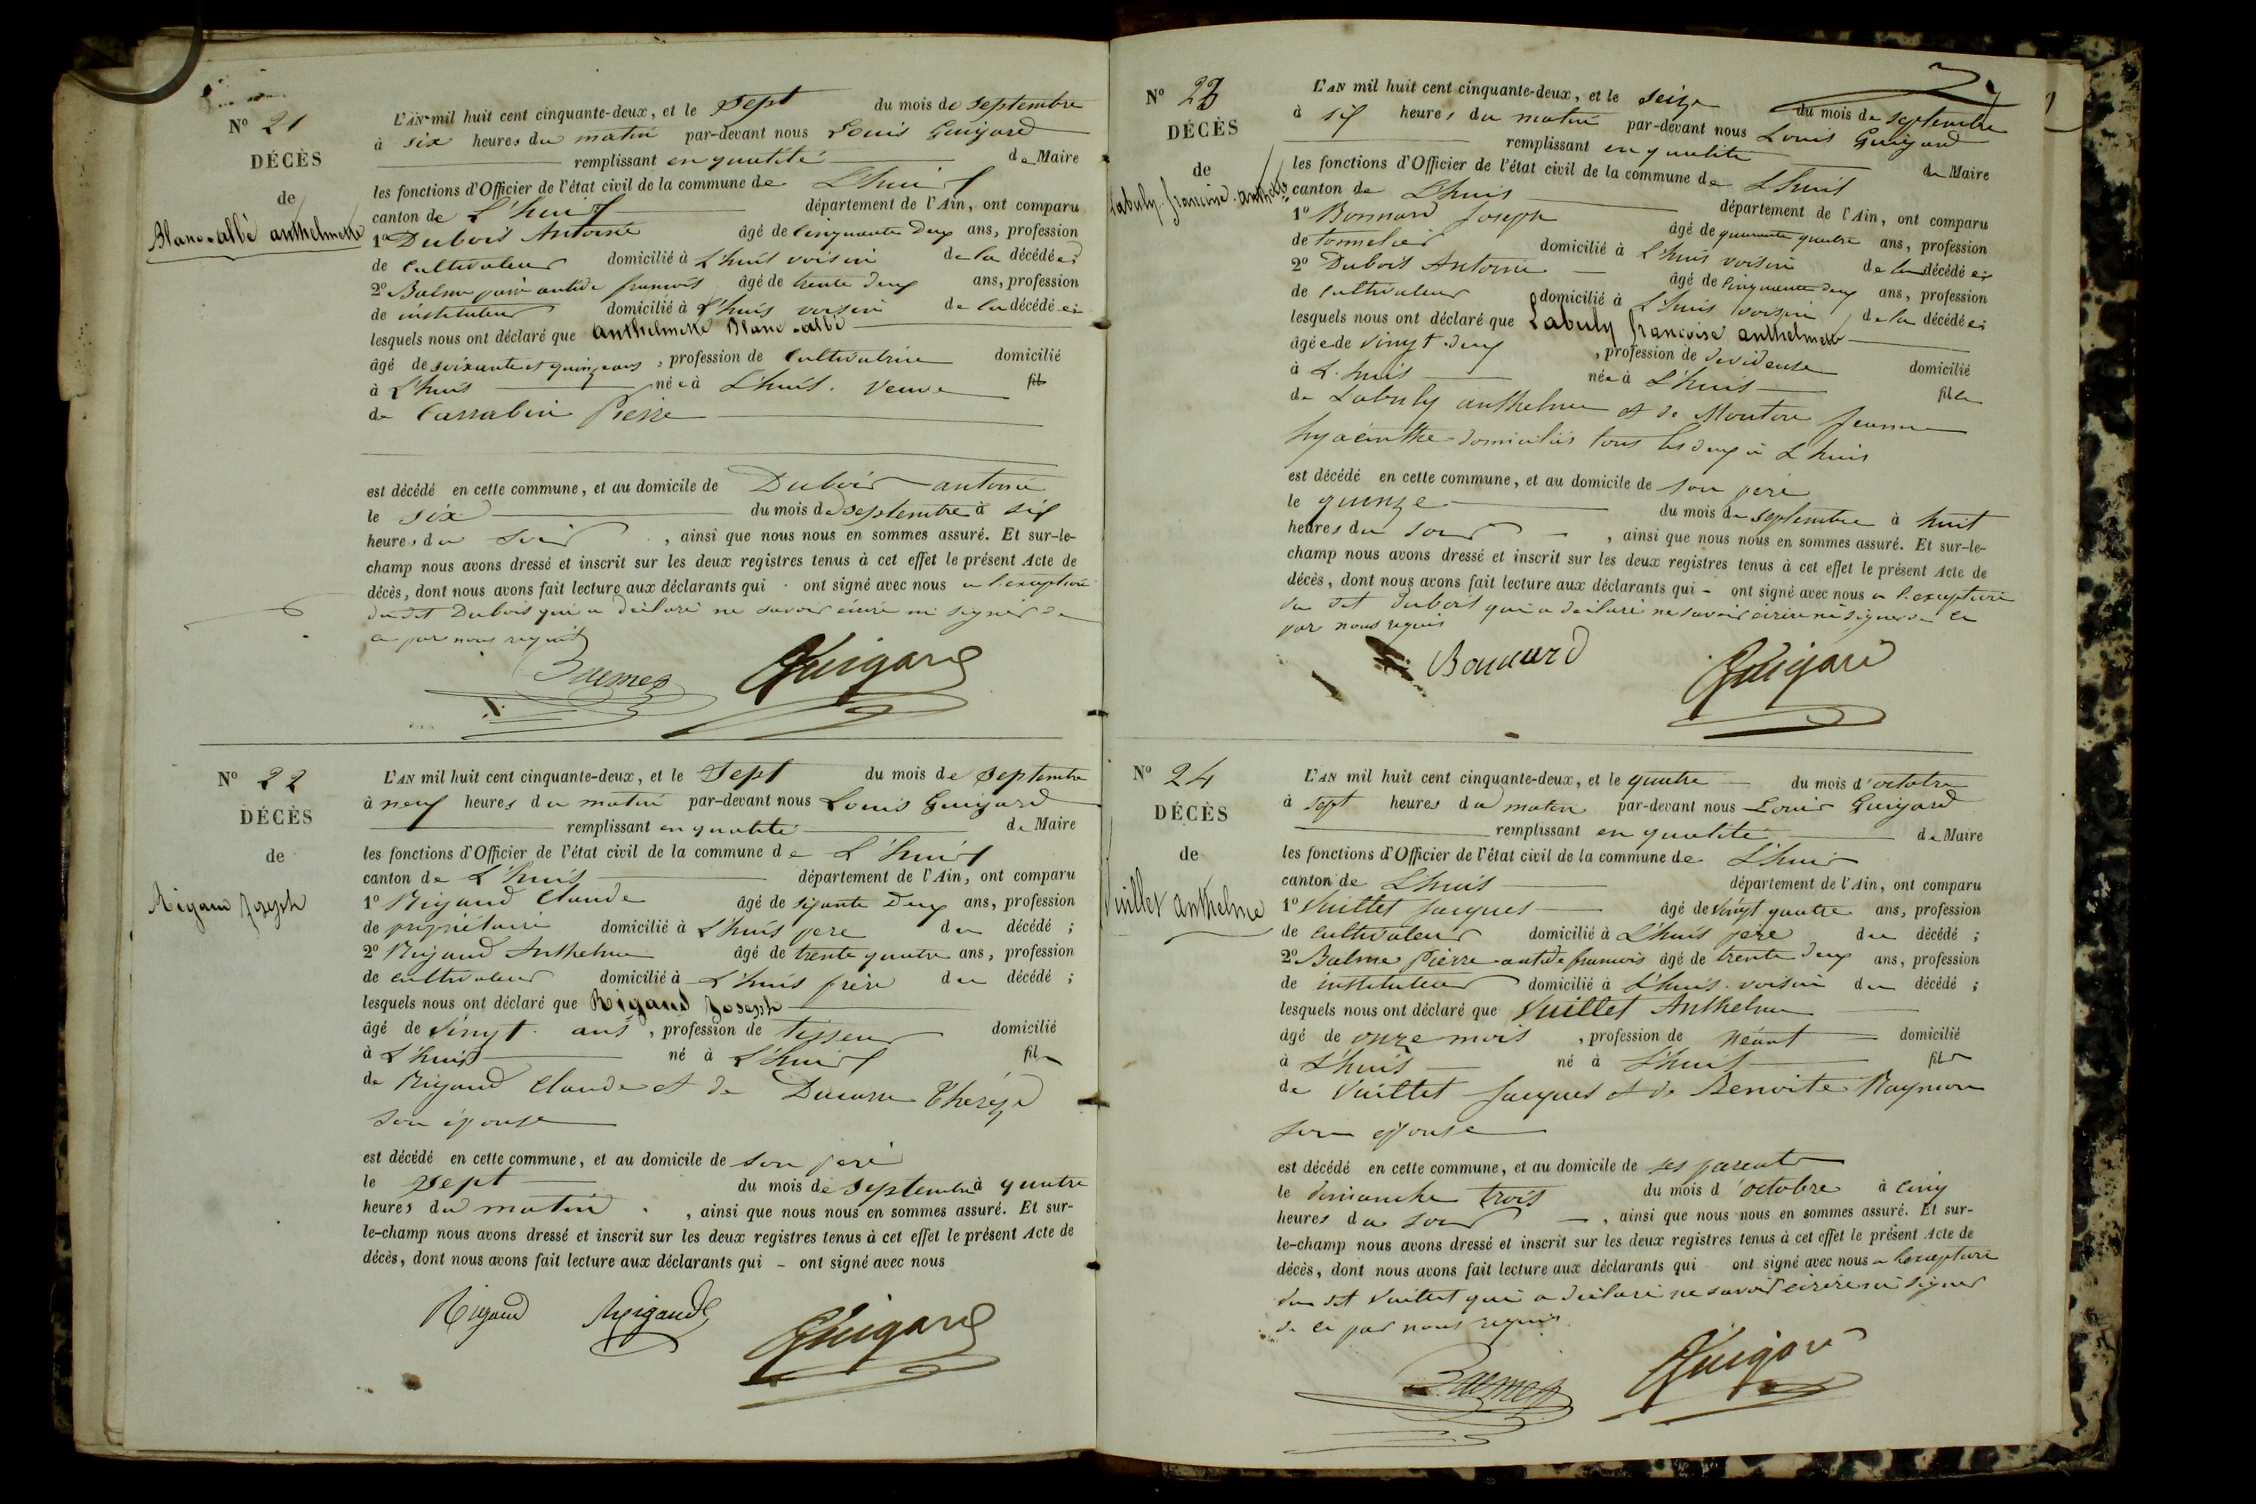 N° 21
DÉCÈS
de
Blanc-albè anthelmette
L'AN mil huit cent cinquante-deux, et le sept du mois de septembre
à six heures du matin par-devant nous Louis Guigard
remplissant en qualité de Maire
les fonctions d'Officier de l'état civil de la commune de L'huis
canton de L'huis département de l'Ain, ont comparu
1° Dubois Antoine âgé de cinquante deux ans, profession
de cultivateur domicilié à L'huis voisin de la décédée;
2° Balme pierre antide francois âgé de trente deux ans, profession
de instituteur domicilié à L'huis voisin de la décédée;
lesquels nous ont déclaré que anthelmette Blanc-albè
âgé de soixante et quinze ans, profession de cultivatrice domicilié
à L'huis née à L'huis. veuve fils
de Carrabin Pierre
est décédé en cette commune, et au domicile de Dubois antoine
le six du mois de septembre à six
heures du soir, ainsi que nous nous en sommes assuré. Et sur-le-
champ nous avons dressé et inscrit sur les deux registres tenus à cet effet le présent Acte de
décès, dont nous avons fait lecture aux déclarants qui ont signé avec nous a l'exception
du dit Dubois qui a déclaré ne savoir écrire ni signer de
ce par nous requis
Balme Guigard
N° 22
DÉCÈS
de
Rigaud Joseph
L'AN mil huit cent cinquante-deux, et le sept du mois de septembre
à neuf heures du matin par-devant nous Louis Guigard
remplissant en qualité de Maire
les fonctions d'Officier de l'état civil de la commune de L'huis
canton de L'huis département de l'Ain, ont comparu
1° Rigaud Claude âgé de sixante deux ans, profession
de propriétaire domicilié à L'huis pere du décédé;
2° Rigaud Anthelme âgé de trente quatre ans, profession
de cultivateur domicilié à L'huis frère du décédé;
lesquels nous ont déclaré que Rigaud Joseph
âgé de vingt ans, profession de tisseur domicilié
à L'huis né à L'huis fils
de Rigaud Claude et de Ducarre Thérèze
son épouse
est décédé en cette commune, et au domicile de son pere
le sept du mois de septembre à quatre
heures du matin, ainsi que nous nous en sommes assuré. Et sur-
le-champ nous avons dressé et inscrit sur les deux registres tenus à cet effet le présent Acte de
décès, dont nous avons fait lecture aux déclarants qui - ont signé avec nous
Rigaud Rigaud Guigard
N° 23
DÉCÈS
de
Labuly francoise anthelmette
L'AN mil huit cent cinquante-deux, et le seize du mois de septembre
à six heures du matin par-devant nous Louis Guigard
remplissant en qualité de Maire
les fonctions d'Officier de l'état civil de la commune de L'huis
canton de L'huis département de l'Ain, ont comparu
1° Bonnard Joseph âgé de quarante quatre ans, profession
de tonnelier domicilié à L'huis voisin de la décédée;
2° Dubois Antoine âgé de cinquante deux ans, profession
de cultivateur domicilié à L'huis voisin de la décédée;
lesquels nous ont déclaré que Labuly francoise anthelmette
âgée de vingt deux, profession de devideuse domicilié
à L'huis née à L'huis fille
de Labuly anthelme et de Mouton Jeanne
hyacinthe domiciliés tous les deux à L'huis
est décédé en cette commune, et au domicile de son père
le quinze du mois de septembre à huit
heures du soir, ainsi que nous nous en sommes assuré. Et sur-le-
champ nous avons dressé et inscrit sur les deux registres tenus à cet effet le présent Acte de
décès, dont nous avons fait lecture aux déclarants qui - ont signé avec nous a l'exception
du dit dubois qui a déclaré ne savoir écrire ni signer de ce
par nous requis
Bonnard Guigard
N° 24
DÉCÈS
de
Vuillet anthelme
L'AN mil huit cent cinquante-deux, et le quatre du mois d'octobre
à sept heures du matin par-devant nous Louis Guigard
remplissant en qualité de Maire
les fonctions d'Officier de l'état civil de la commune de L'huis
canton de L'huis département de l'Ain, ont comparu
1° Vuillet Jacques âgé de vingt quatre ans, profession
de cultivateur domicilié à L'huis pere du décédé;
2° Balme Pierre antide francois âgé de trente deux ans, profession
de instituteur domicilié à L'huis voisin du décédé;
lesquels nous ont déclaré que Vuillet Anthelme
âgé de onze mois, profession de néant domicilié
à L'huis né à L'huis fils
de Vuillet Jacques et de Benoite Raymon
son épouse
est décédé en cette commune, et au domicile de ses parents
le dimanche trois du mois d'octobre à cinq
heures du soir, ainsi que nous nous en sommes assuré. Et sur-
le-champ nous avons dressé et inscrit sur les deux registres tenus à cet effet le présent Acte de
décès, dont nous avons fait lecture aux déclarants qui ont signé avec nous a l'exception
du dit Vuillet qui a déclaré ne savoir écrire ni signer
de ce par nous requis
Balme Guigard